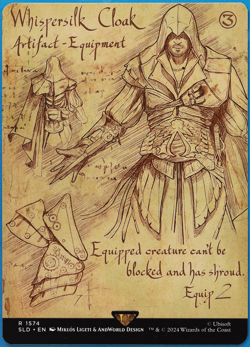 Whispersilk Cloak 3
Artifact - Equipment
Equipped creature can't be
blocked and has shroud.
Equip 2
R 1574 © Ubisoft
SLD • EN MIKLÓS LIGETI & ANDWORLD DESIGN ™ & © 2024 Wizards of the Coast